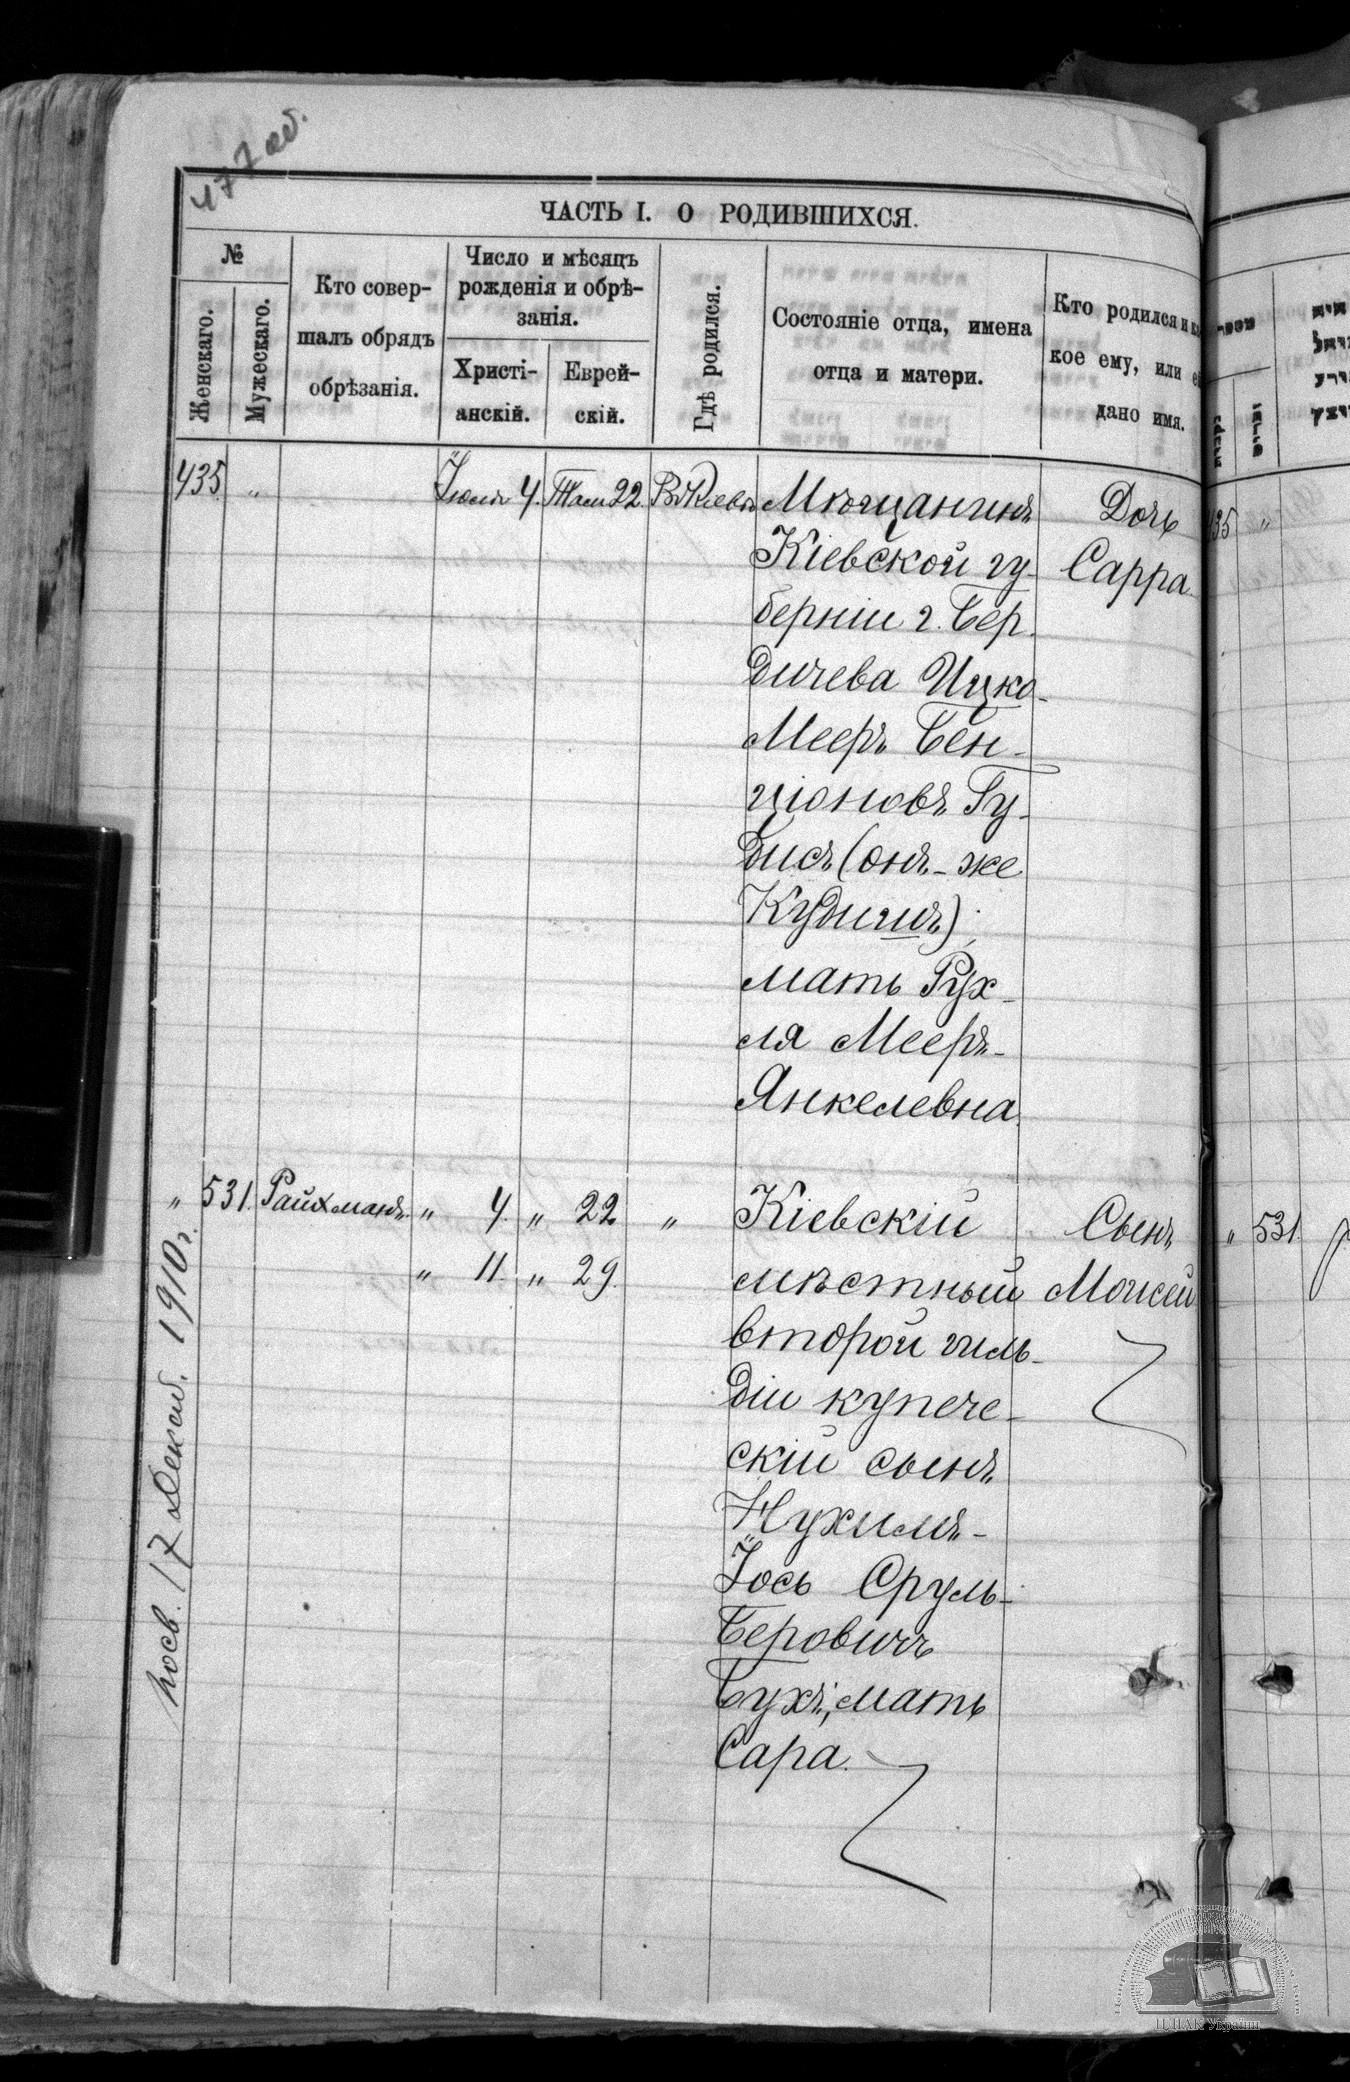 177 об.
ЧАСТЬ I. О РОДИВШИХСЯ.
№
Женскаго.
Мужескаго.
Кто совер-
шалъ обрядъ
обрѣзанія.
Число и мѣсяцъ
рожденія и обрѣ-
занія.
Христі-
анскій.
Еврей-
скій.
Гдѣ родился.
Состояніе отца, имена
отца и матери.
Кто родился и ка
кое ему, или ей
дано имя.
435. " Іюля 4. Там 22. Въ Кіевѣ Мѣщанинъ Дочь
Кіевской гу- Сарра.
берніи г. Бер-
дичева Ицко-
Мееръ Бен-
ціоновъ Гу-
дисъ (онъ-же
Кудишъ);
мать Рух-
ля Мееръ-
Янкелевна.
" 531. Райхманъ. " 4. " 22 " Кіевскій Сынъ
" 11. " 29. мѣстный Моисей
второй гиль-
діи купече-
скій сынъ
Нухимъ-
Іось Сруль-
Беровичъ
Бухъ; мать
Сара.
17 Декаб. 1910 г.
435 "
" 531.
ЦДІАК України